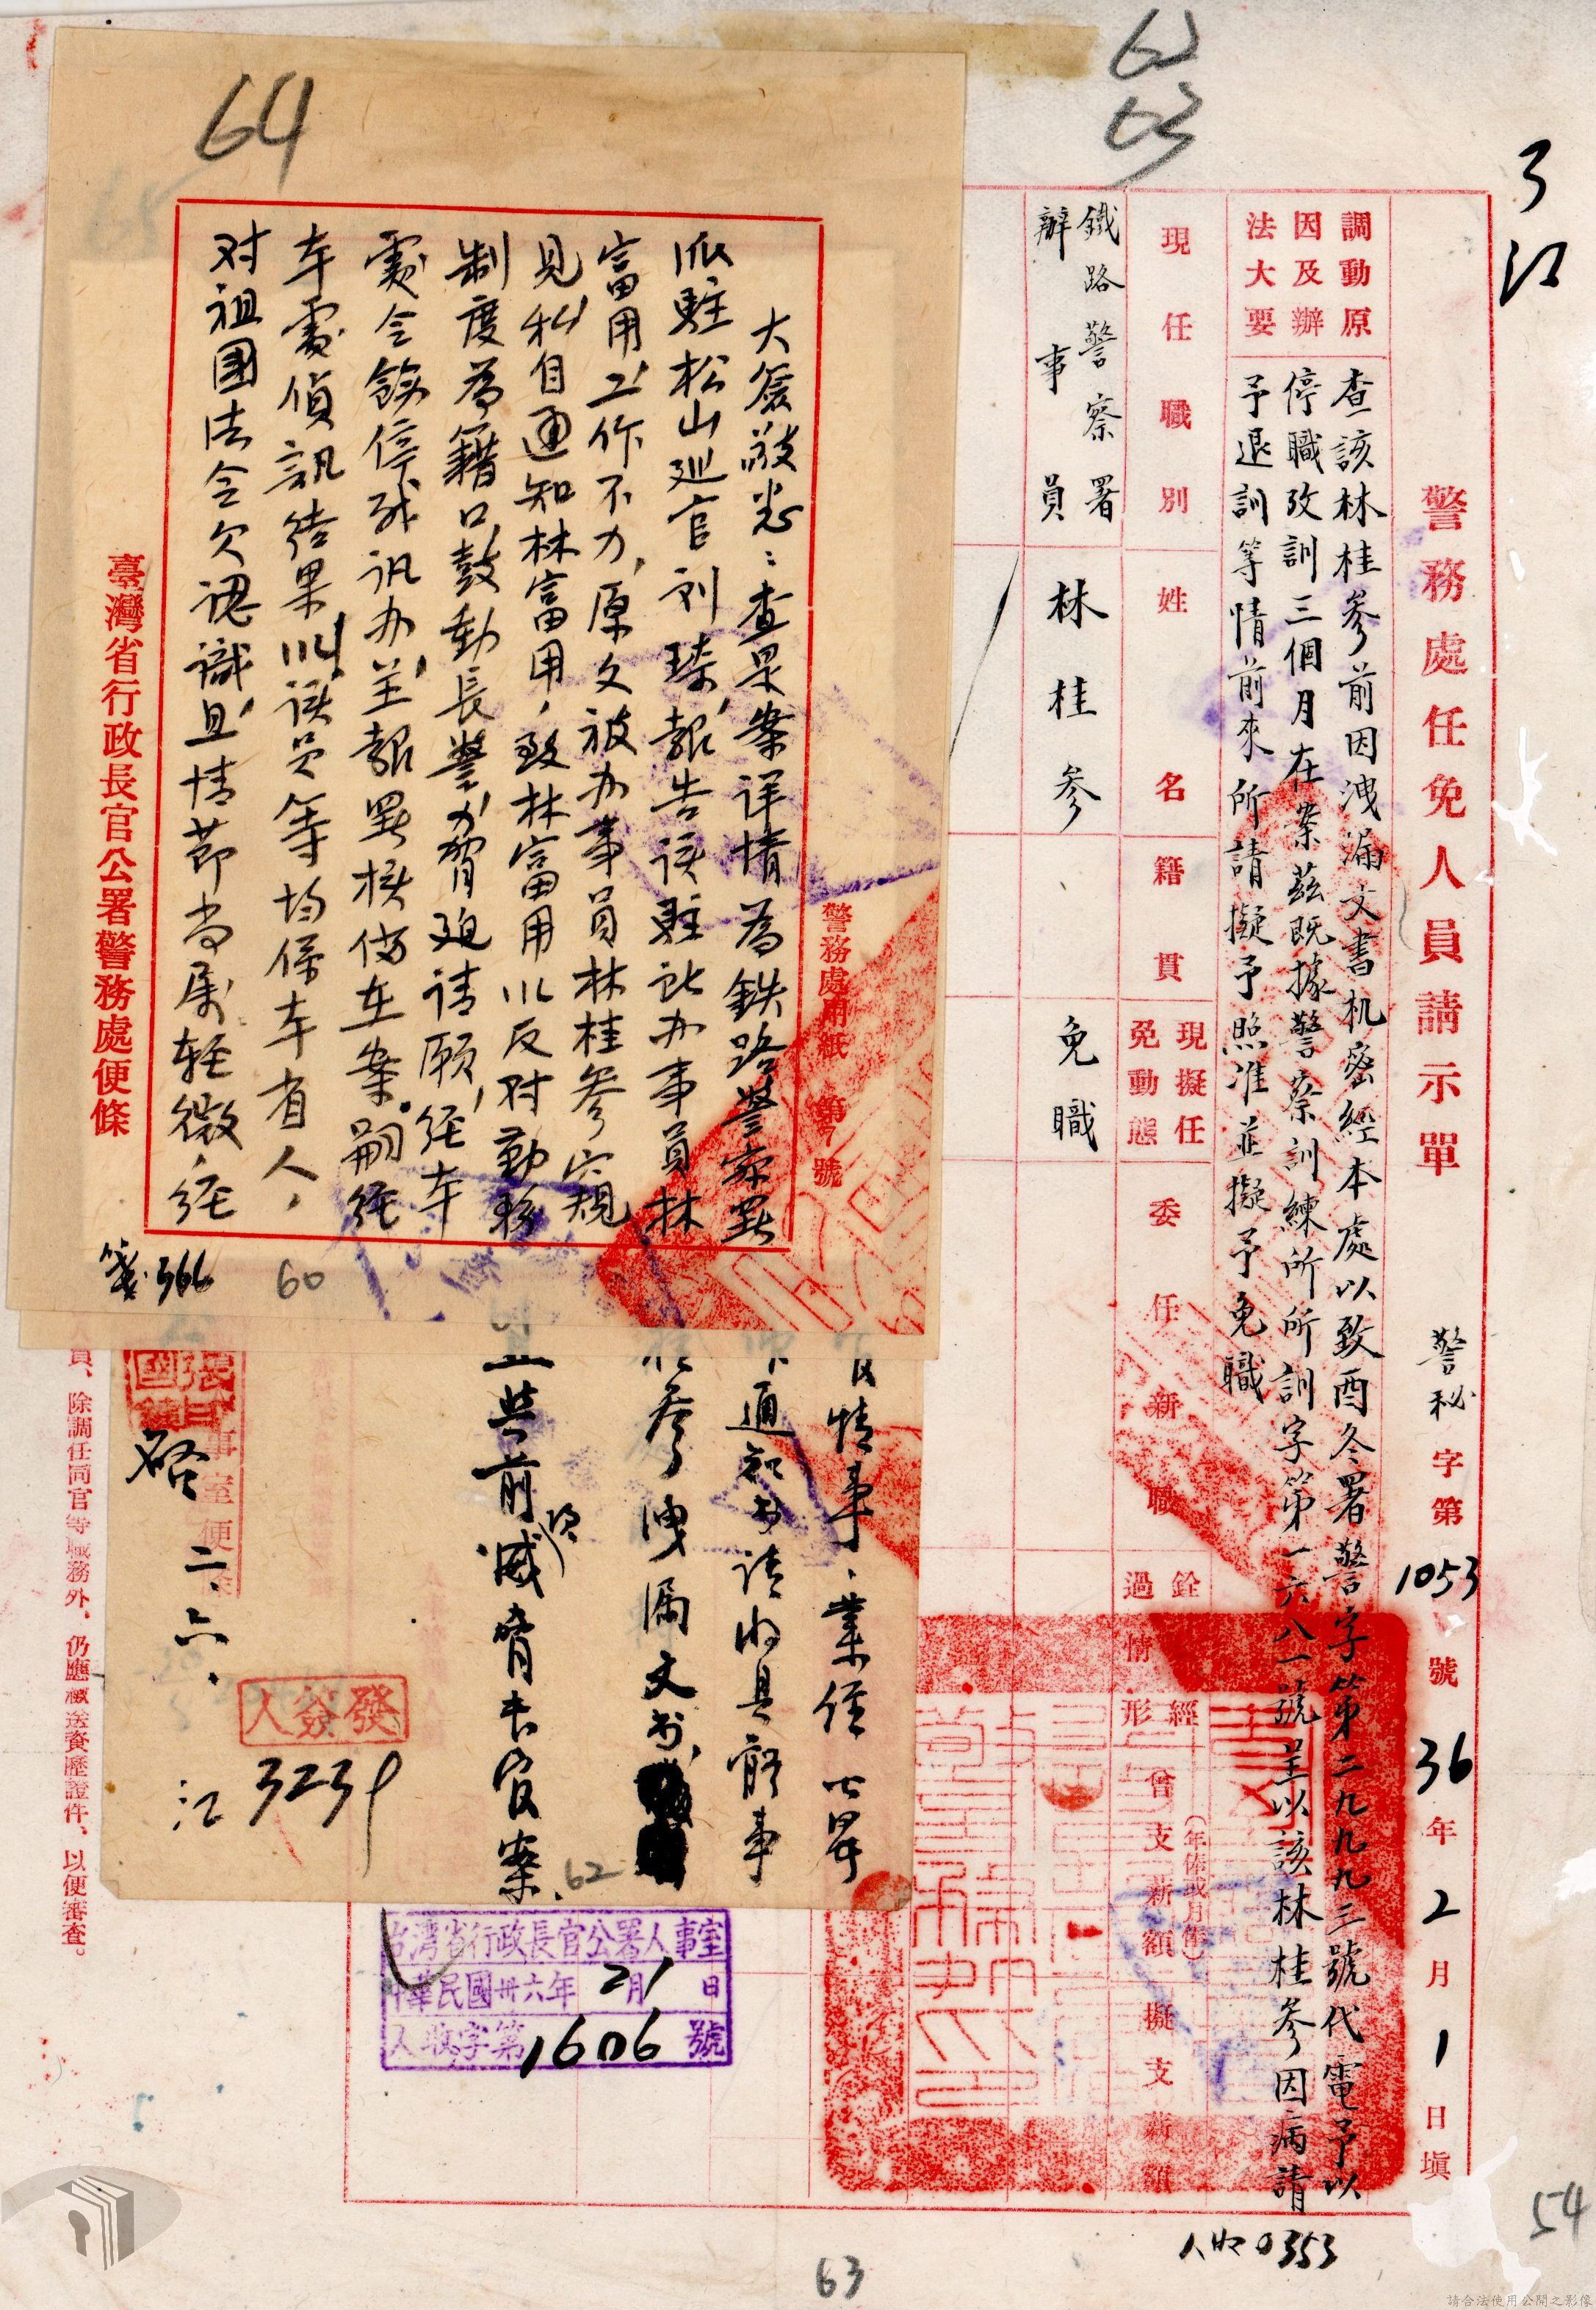 64
62
63
了
江
警務處任免人員請示單
警秘字第1053號 36年2月1日填
調動原因及辦法大要
查該林桂參前因洩漏文書机密經本處以致酉冬署警字第二九九九三號代電予以
停職改訓三個月在案茲既據警察訓練所所訓字第一六八一號呈以該林桂參因病請
予退訓等情前來所請擬予照准並擬予免職
現任職別
姓名
籍貫
現擬任免動態
委任新職
銓經過情形
曾支薪額
(年俸或月俸)
擬支薪額
鐵路警察署
辦事員
林桂參
免職
警務處用紙 第7號
大簽敬悉:查是案詳情為鉄路警察署
派駐松山巡官刘琫報告該駐所办事員林
富用工作不力,原文被办事員林桂參窺
見私自通知林富用,致林富用以反対勤務
制度為籍口鼓動長警力脅迫請願,經本
處令飭停職訊办並報署核俻在案。嗣經
本處偵訊結果以該员等均係本省人,
对祖國法令欠認識且情節尚属輕微,經
臺灣省行政長官公署警務處便條
箋.366
60
情事、業經
通知書請將具體事
參洩漏文書
共前次威脅長官案、
62
事室便
二、六、
江
發簽人
3239
台灣省行政長官公署人事室
中華民國卅六年2月1日
人收字第1606號
員、除調任同官等職務外、仍應檢送資歷證件、以便審查。
0353
54
63
請合法使用公開之影像